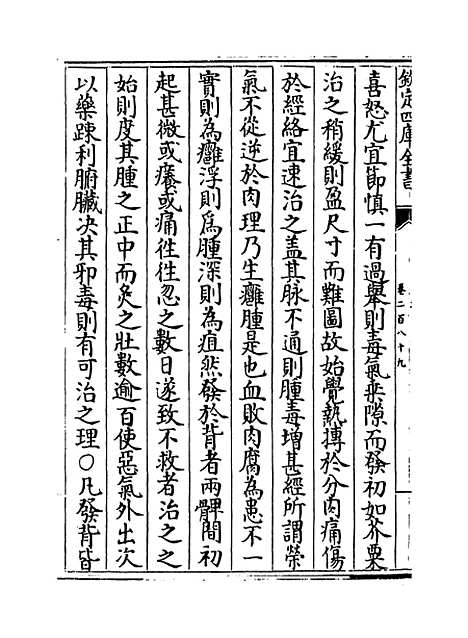 欽定四庫全書
卷二百八十九
喜怒尤宜節慎一有過舉則毒氣乘隙而發初如芥粟
治之稍緩則盈尺寸而難圖故始覺熱搏於分肉痛傷
於經絡宜速治之盖其脉不通則腫毒増甚經所謂榮
氣不從逆於肉理乃生癰腫是也血敗肉腐為患不一
實則為癰浮則爲腫深則為疽然發於背者兩髀間初
起甚微或癢或痛徃徃忽之數日遂致不救者治之之
始則度其腫之正中而灸之壯數逾百使惡氣外出次
以藥踈利腑臟决其邪毒則有可治之理〇凡發背皆